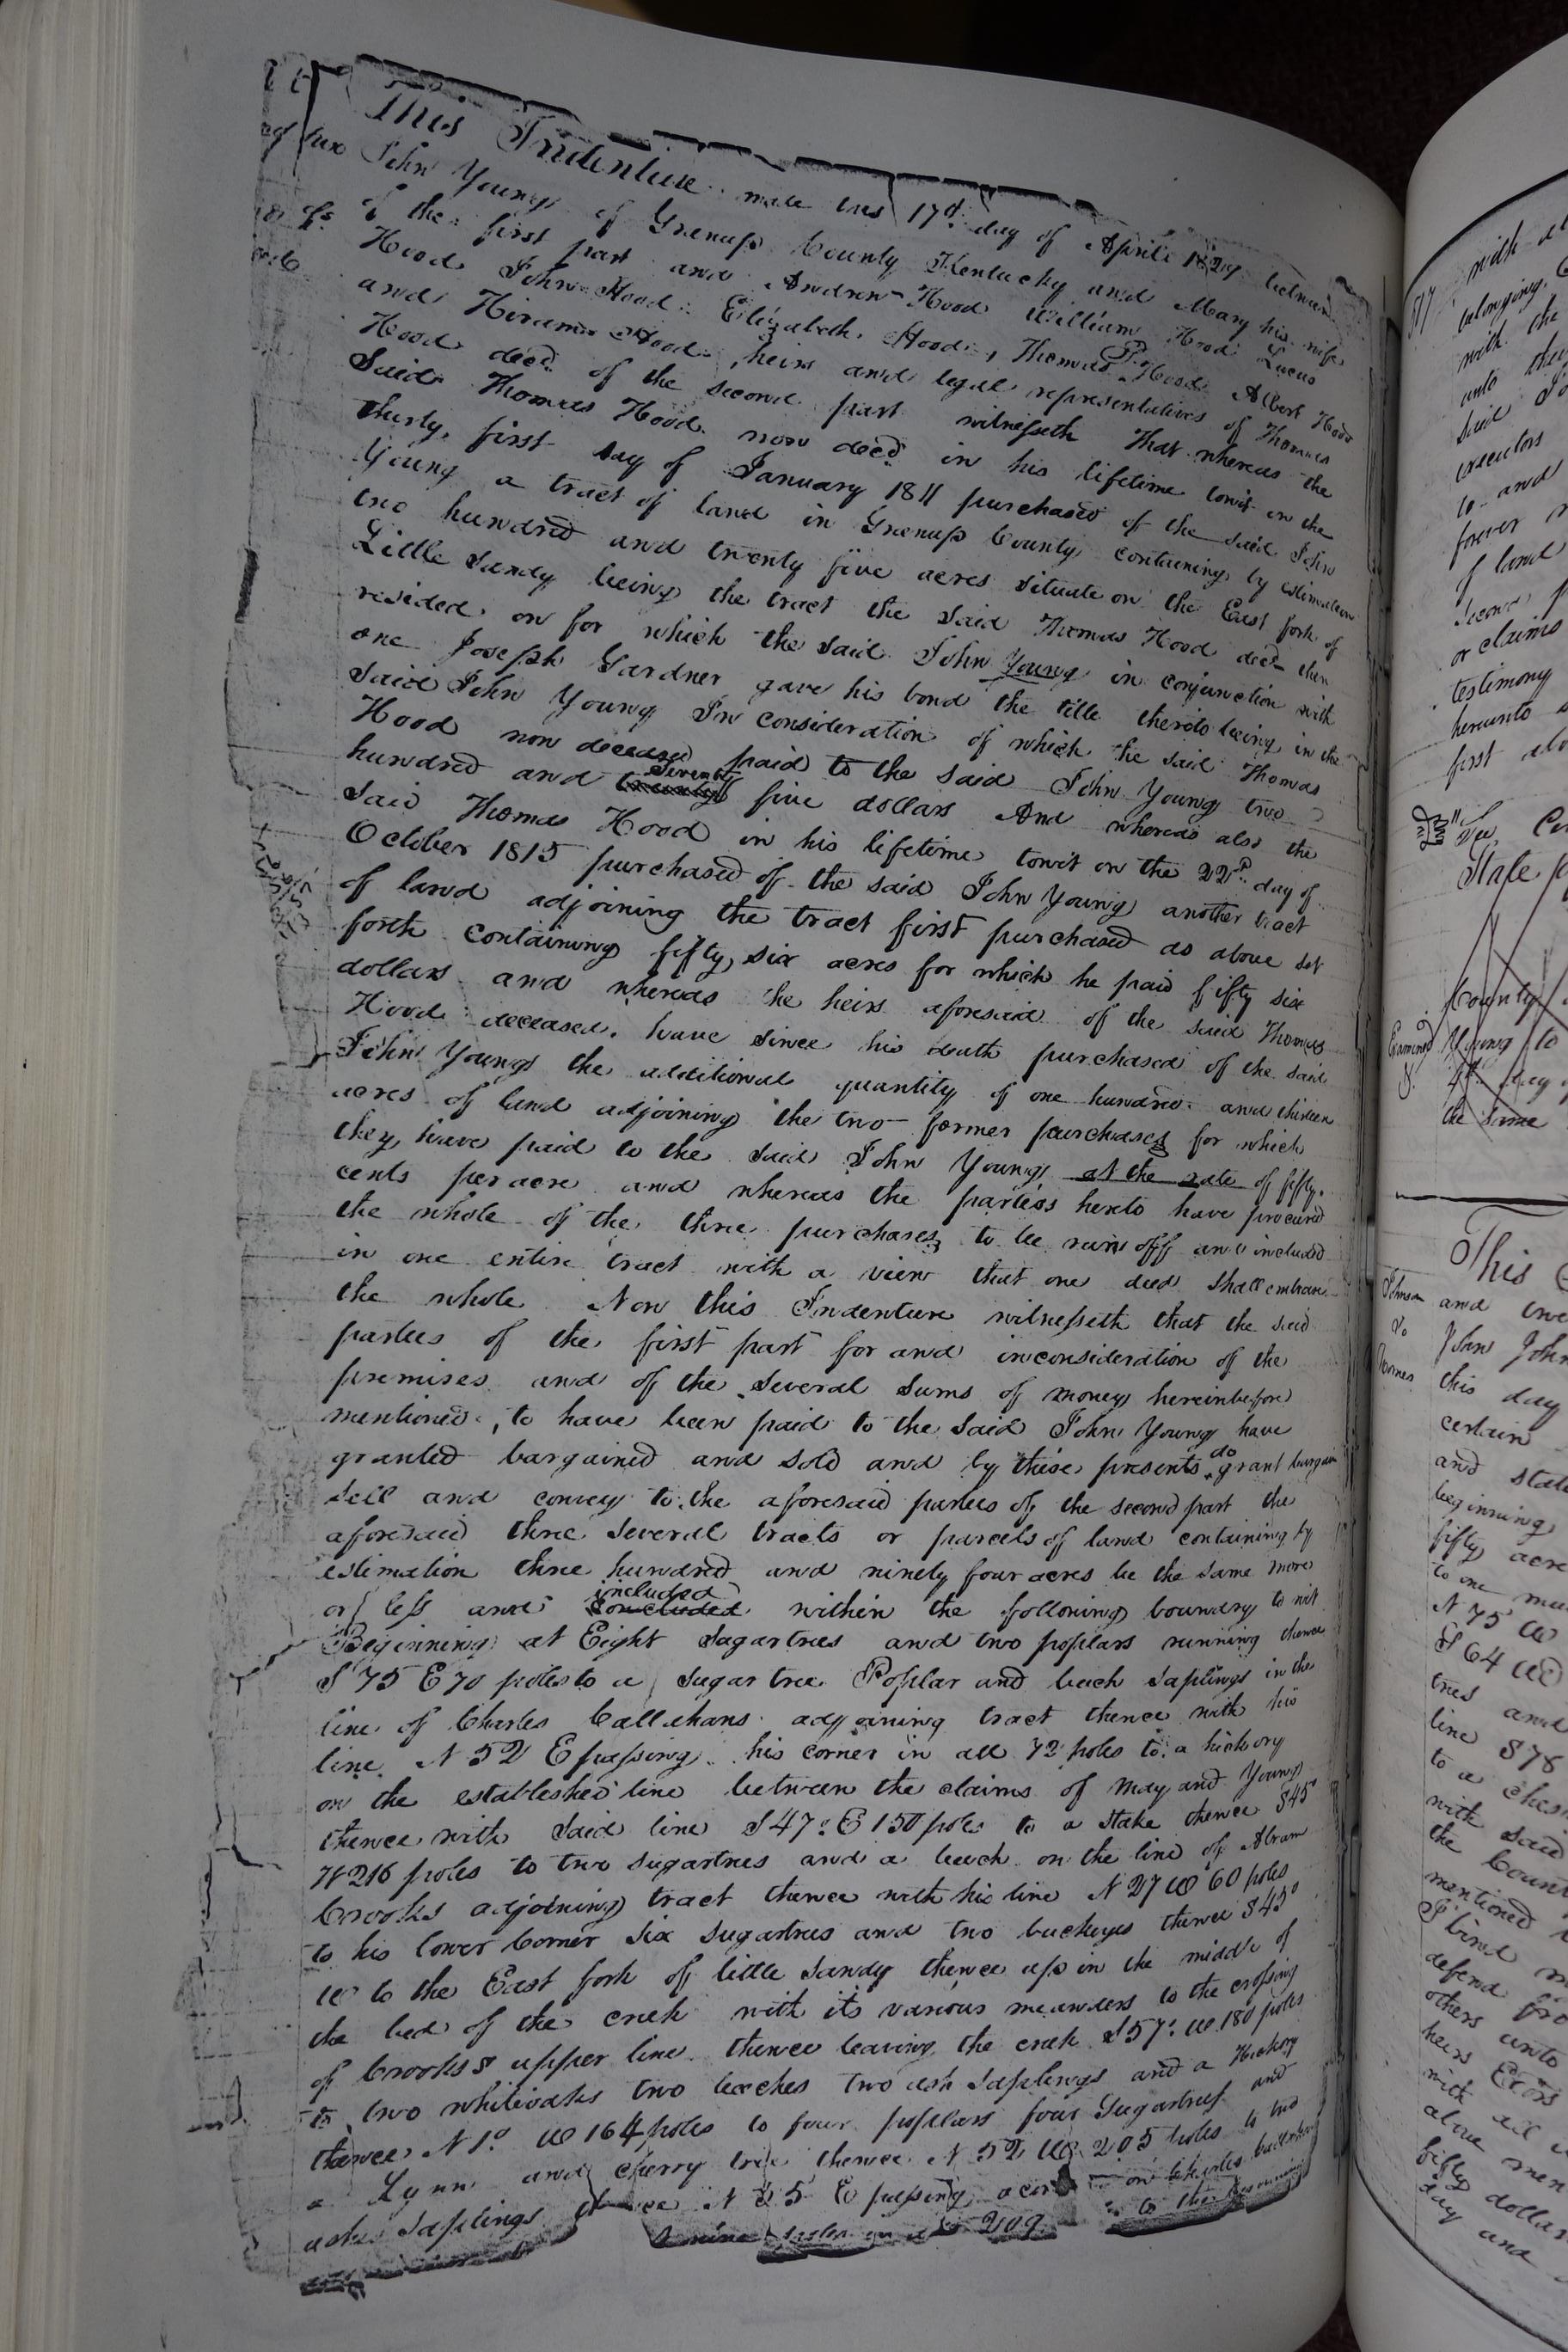 This Indenture made this 17th day of April 1829 between
John Young of Greenup County Kentucky and Mary his wife
of the first part and Andrew Hood William Hood Lucus
Hood John Hood Elizabeth Hood, Thomas P. Hood Albert Hood
and Hiram Hood heirs and legal representatives of Thomas
Hood decd. of the second part witnesseth That whereas the
Said Thomas Hood now decd. in his lifetime towit on the
thirty first day of January 1811 purchased of the said John
Young a tract of land in Greenup County containing by estimation
two hundred and twenty five acres situate on the East fork of
Little Sandy being the tract the said Thomas Hood decd then
resided on for which the said John Young in conjunction with
one Joseph Gardner gave his bond the title thereto being in the
said John Young In consideration of which the said Thomas
Hood now deceased paid to the said John Young two
hundred and seventy five dollars And whereas also the
said Thomas Hood in his lifetime towit on the 22d. day of
October 1815 purchased of the said John Young another tract
of land adjoining the tract first purchased as above set
forth containing fifty six acres for which he paid fifty six
dollars and whereas the heirs aforesaid of the said Thomas
Hood deceased. have since his death purchased of the said
John Young the additional quantity of one hundred and thirteen
acres of land adjoining the two former purchases for which
they have paid to the said John Young at the rate of fifty
cents per acre and whereas the parties hereto have procured
the whole of the three purchases to be run off and included
in one entire tract with a view that one deed shall embrace
the whole Now this Indenture witnesseth that the said
parties of the first part for and inconsideration of the
premises and of the several sums of money hereinbefore
mentioned, to have been paid to the said John Young have
granted bargained and sold and by these presents do grant bargain
sell and convey to the aforesaid parties of the second part the
aforesaid three several tracts or parcels of land containing by
estimation three hundred and ninety four acres be the same more
or less and included within the following boundry to wit
Beginning at Eight Sugartrees and two poplars running thence
S 75 E 70 poles to a Sugar tree Poplar and beech saplings in the
line of Charles Callihans adjoining tract thence with his
line N 52 E passing his corner in all 72 poles to a hickory
on the established line between the claims of May and Young
thence with said line S 47° E 150 poles to a stake thence S 45°
W 216 poles to two sugartrees and a beech on the line of Abram
Crooks adjoining tract thence with his line N 27 W 60 poles
to his lower Corner six sugartrees and two buckeyes thence S 45°
W to the East fork of little Sandy thence up in the middle of
the bed of the creek with its various meanders to the crossing
of Crooks's upper line thence leaving the creek S 57° W 180 poles
to two whiteoaks two beeches two ash saplings and a Hickory
thence N 1° W 164 poles to four poplars four sugartrees and
a Lynn and cherry tree thence N 52 W 205 poles to two
ash saplings thence N 35 E passing a corner on Charles
nine poles in all 209 to the Beginning
517
with
belonging
with the
unto the
said
executors
to and
forever
of land
second
or claims
testimony
hereunto
first
State
County
Examined
Young to
4th day of
the same
This
Johnson and
to John John
this day
certain
and state
beginning
fifty acre
to one
N 75 W
S 64 W
trees and
line S 78
to a ches
with said
the Coun
mentioned
I bind
defend fro
others unto
heirs Exors
with all
above men
fifty dollar
day and